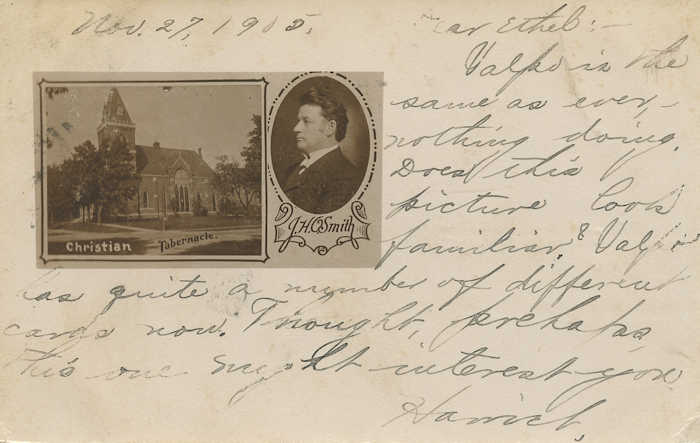 Nov. 27, 1905.
Dear Ethel:-
Valpo is the
same as ever,-
nothing doing.
Does this
picture look
familiar? Valpo
has quite a number of different
cards now. Thought, perhaps,
this one might interest you.
Christian Tabernacle.
J.H.O. Smith